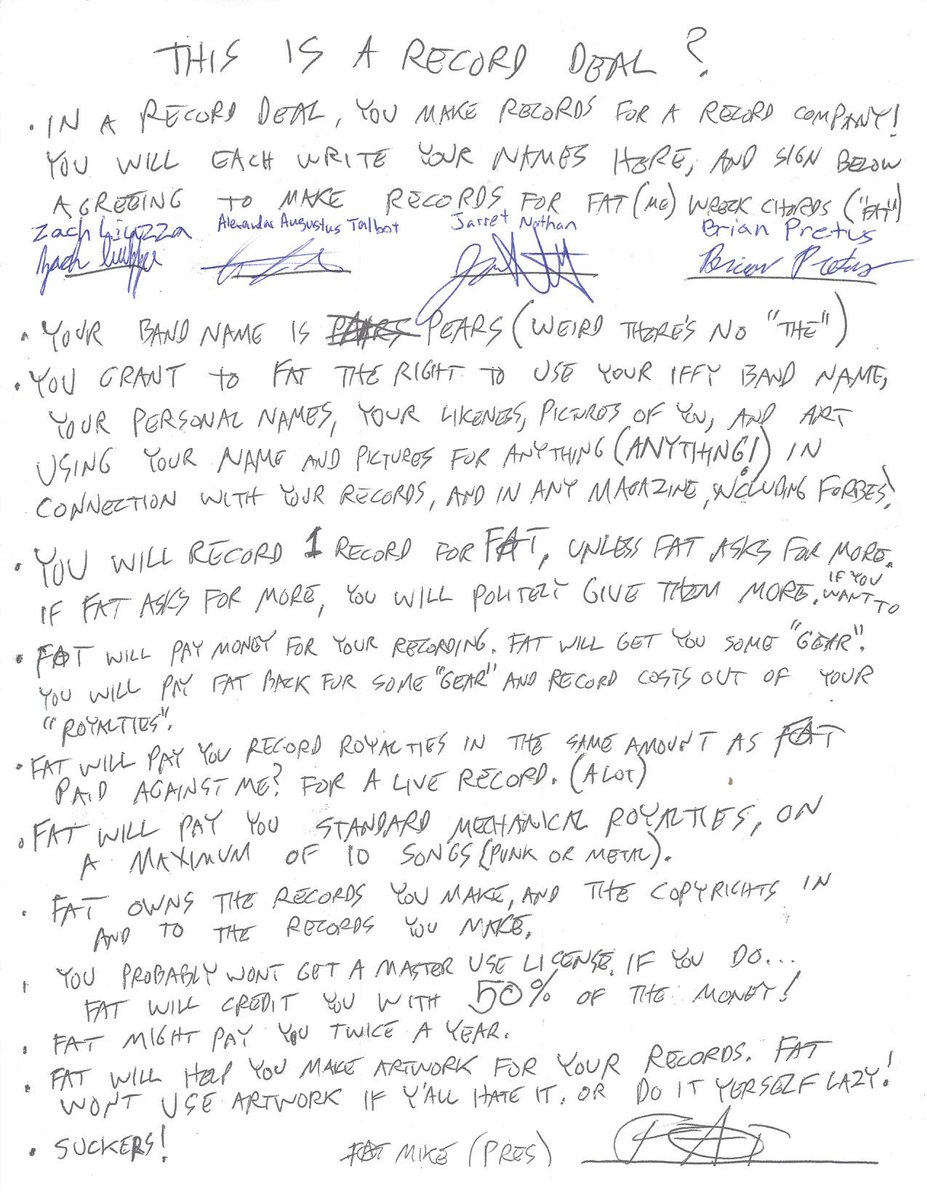 THIS IS A RECORD DEAL?
• IN A RECORD DEAL, YOU MAKE RECORDS FOR A RECORD COMPANY!
YOU WILL EACH WRITE YOUR NAMES HERE, AND SIGN BELOW
AGREEING TO MAKE RECORDS FOR FAT (ME) WRECK CHORDS ("FAT")
Zach Liuzza Alexandar Augustus Talbot Jarret Nathan Brian Pretus
Brian Pretus
• YOUR BAND NAME IS PEARS (WEIRD THERE'S NO "THE")
• YOU GRANT TO FAT THE RIGHT TO USE YOUR IFFY BAND NAME,
YOUR PERSONAL NAMES, YOUR LIKENESS, PICTURES OF YOU, AND ART
USING YOUR NAME AND PICTURES FOR ANYTHING (ANYTHING!) IN
CONNECTION WITH YOUR RECORDS, AND IN ANY MAGAZINE, INCLUDING FORBES!
• YOU WILL RECORD 1 RECORD FOR FAT, UNLESS FAT ASKS FOR MORE.
IF FAT ASKS FOR MORE, YOU WILL POLITELY GIVE THEM MORE. IF YOU WANT TO
• FAT WILL PAY MONEY FOR YOUR RECORDING. FAT WILL GET YOU SOME "GEAR".
YOU WILL PAY FAT BACK FOR SOME "GEAR" AND RECORD COSTS OUT OF YOUR
"ROYALTIES".
• FAT WILL PAY YOU RECORD ROYALTIES IN THE SAME AMOUNT AS FAT
PAID AGAINST ME? FOR A LIVE RECORD. (A LOT)
• FAT WILL PAY YOU STANDARD MECHANICAL ROYALTIES, ON
A MAXIMUM OF 10 SONGS (PUNK OR METAL).
• FAT OWNS THE RECORDS YOU MAKE, AND THE COPYRIGHTS IN
AND TO THE RECORDS YOU MAKE,
• YOU PROBABLY WONT GET A MASTER USE LICENSE. IF YOU DO...
FAT WILL CREDIT YOU WITH 50% OF THE MONEY!
• FAT MIGHT PAY YOU TWICE A YEAR.
• FAT WILL HELP YOU MAKE ARTWORK FOR YOUR RECORDS. FAT
WON'T USE ARTWORK IF Y'ALL HATE IT. OR DO IT YERSELF LAZY!
• SUCKERS! FAT MIKE (PRES) FAT